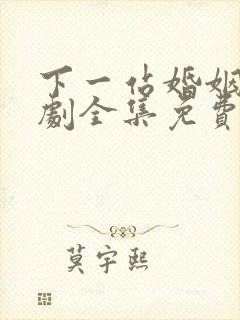 下一站婚姻
劇全集免費
莫宇熙